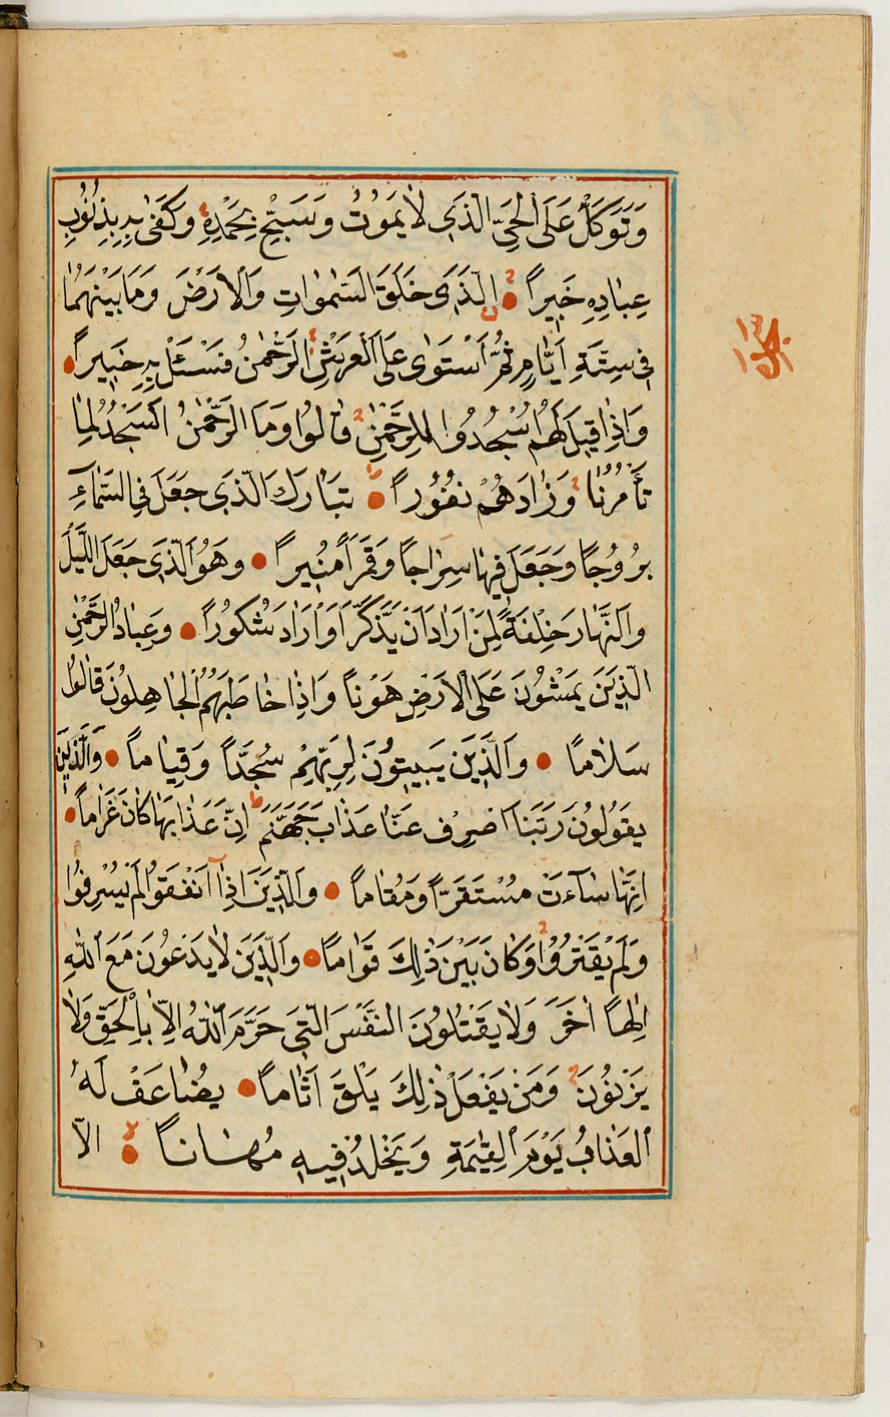 وَتَوَكَّلْ عَلَى الْحَيِّ الَّذِي لَا يَمُوتُ وَسَبِّحْ بِحَمْدِهِ وَكَفٰى بِهِ بِذُنُوبِ
عِبَادِهِ خَبِيرًا الَّذِي خَلَقَ السَّمٰوَاتِ وَالْاَرْضَ وَمَا بَيْنَهُمَا
فِي سِتَّةِ اَيَّامٍ ثُمَّ اسْتَوٰى عَلَى الْعَرْشِ الرَّحْمٰنُ فَسْـَٔلْ بِهِ خَبِيرًا
وَاِذَا قِيلَ لَهُمُ اسْجُدُوا لِلرَّحْمٰنِ قَالُوا وَمَا الرَّحْمٰنُ اَنَسْجُدُ لِمَا
تَأْمُرُنَا وَزَادَهُمْ نُفُورًا تَبَارَكَ الَّذِي جَعَلَ فِي السَّمَاءِ
بُرُوجًا وَجَعَلَ فِيهَا سِرَاجًا وَقَمَرًا مُنِيرًا وَهُوَ الَّذِي جَعَلَ اللَّيْلَ
وَالنَّهَارَ خِلْفَةً لِمَنْ اَرَادَ اَنْ يَذَّكَّرَ اَوْ اَرَادَ شُكُورًا وَعِبَادُ الرَّحْمٰنِ
الَّذِينَ يَمْشُونَ عَلَى الْاَرْضِ هَوْنًا وَاِذَا خَاطَبَهُمُ الْجَاهِلُونَ قَالُوا
سَلَامًا وَالَّذِينَ يَبِيتُونَ لِرَبِّهِمْ سُجَّدًا وَقِيَامًا وَالَّذِينَ
يَقُولُونَ رَبَّنَا اصْرِفْ عَنَّا عَذَابَ جَهَنَّمَ اِنَّ عَذَابَهَا كَانَ غَرَامًا
اِنَّهَا سَاءَتْ مُسْتَقَرًّا وَمُقَامًا وَالَّذِينَ اِذَا اَنْفَقُوا لَمْ يُسْرِفُوا
وَلَمْ يَقْتُرُوا وَكَانَ بَيْنَ ذٰلِكَ قَوَامًا وَالَّذِينَ لَا يَدْعُونَ مَعَ اللّٰهِ
اِلٰهًا اٰخَرَ وَلَا يَقْتُلُونَ النَّفْسَ الَّتِي حَرَّمَ اللّٰهُ اِلَّا بِالْحَقِّ وَلَا
يَزْنُونَ وَمَنْ يَفْعَلْ ذٰلِكَ يَلْقَ اَثَامًا يُضَاعَفْ لَهُ
الْعَذَابُ يَوْمَ الْقِيٰمَةِ وَيَخْلُدْ فِيهِ مُهَانًا اِلَّا